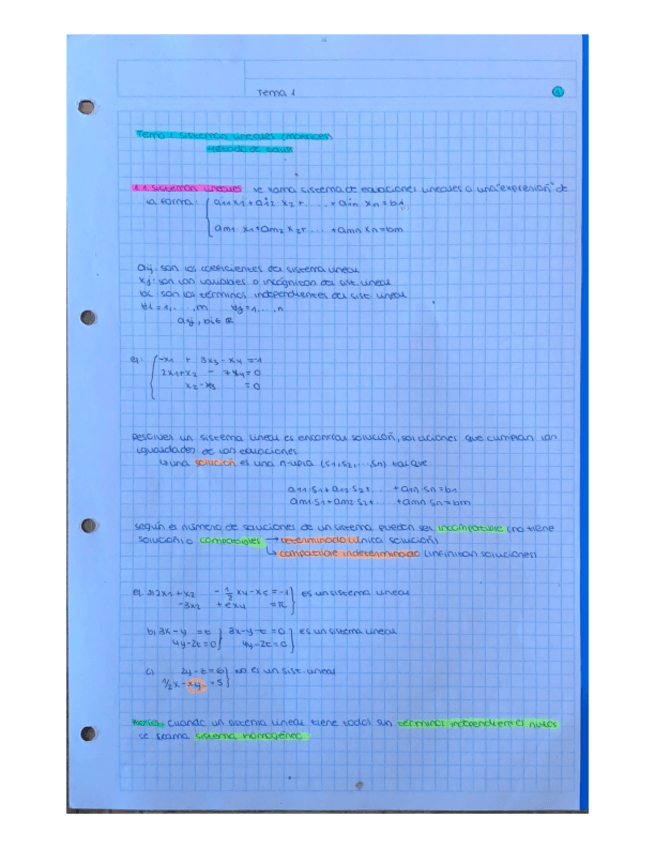 Tema 1
Tema 1: sistemas lineales (matrices)
Método de Gauss
1.1 sistemas lineales se llama sistema de ecuaciones lineales a una "expresión" de
la forma: { a11 x1 + a12 x2 + ... + a1n xn = b1
am1 x1 + am2 x2 + ... + amn xn = bm
aij: son los coeficientes del sistema lineal
xj: son las variables o incógnitas del sist. lineal
bi: son los términos independientes del sist lineal
∀i = 1, ..., m ∀j = 1, ..., n
aij, bi ∈ ℝ
ej: { -x1 + 3x3 - x4 = -1
2x1 + x2 - 7x4 = 0
x2 - x3 = 0
Resolver un sistema lineal es encontrar solución, soluciones que cumplan las
igualdades de las ecuaciones
↳ una solución es una n-upla (s1, s2, ... sn) tal que
a11 s1 + a12 s2 + ... + a1n sn = b1
am1 s1 + am2 s2 + ... + amn sn = bm
según el número de soluciones de un sistema pueden ser incompatible (no tiene
solución) o compatibles → determinado (única solución)
↳ compatible indeterminado (infinitas soluciones)
ej. a) 2x1 + x2 - 1/2 x4 - x5 = -1 } es un sistema lineal
-3x2 + e x4 = π
b) 3x - y = t } 3x - y - t = 0 } es un sistema lineal
4y - 2t = 0 4y - 2t = 0
c) 2y - z = 6 } no es un sist. lineal
1/2 x - xy = 5
Nota: cuando un sistema lineal tiene todos sus términos independientes nulos
se llama sistema homogéneo